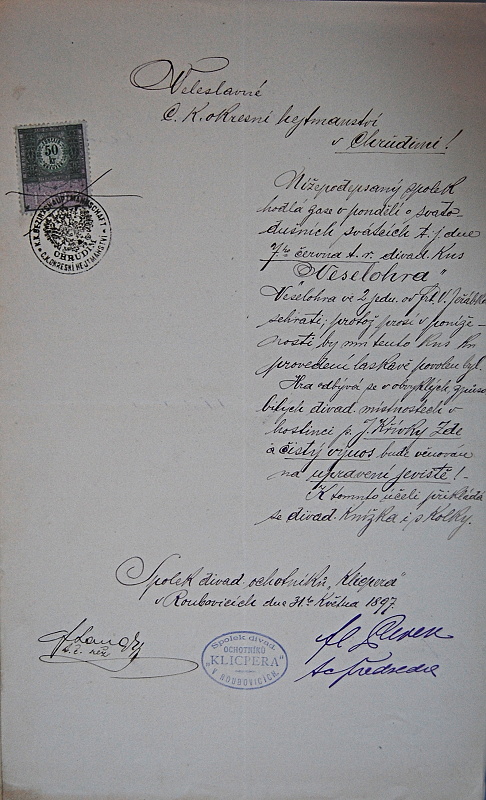 Veleslavné
C. K. okresní hejtmanství
v Chrudimi!
50
K.K. BEZIRKSHAUPTMANNSCHAFT
CHRUDIM
C.K. OKRESNÍ HEJTMANSTVÍ
Nížepodepsaný spolek
hodlá zase v pondělí o svato-
dušních svátcích t. j. dne
7ho června t. r. divad. kus
"Veselohra"
Veselohra ve 2 jedn. od Fr. V. Jeřábka
sehráti; protož prosí v poníže-
nosti by mu tento kus ku
provedení laskavě povolen byl.
Hra odbývá se v obvyklých způso-
bilých divad. místnostech v
hostinci p. J. Křivky zde
a čistý výnos bude věnován
na upravení jeviště! -
K tomuto účeli přikládá
se divad. knížka i s kolky.
Spolek divad. ochotníků "Klicpera"
v Roubovicích dne 31ho Května 1897.
t. č. rež
Spolek divad.
OCHOTNÍKŮ
"KLICPERA"
V ROUBOVICÍCH.
t. č. předseda